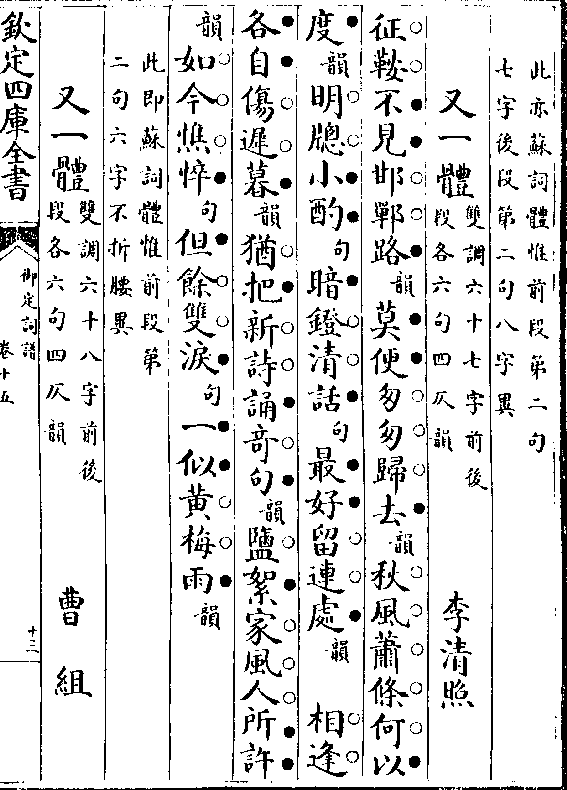 此亦蘇詞體惟前段第二句
七字後段第二句八字異
又一體 雙調六十七字前後
段各六句四仄韻 李清照
征鞍不見邯鄲路韻莫便匆匆歸去韻秋風蕭條何以
度韻明牕小酌句暗鐙清話句最好留連處韻 相逢
各自傷遲暮韻猶把新詩誦奇句韻鹽絮家風人所許
韻如今憔悴句但餘雙淚句一似黄梅雨韻
此即蘇詞體惟前段第
二句六字不折腰異
又一體 雙調六十八字前後
段各六句四仄韻 曹組
欽定四庫全書 御定詞譜 卷十五 十三